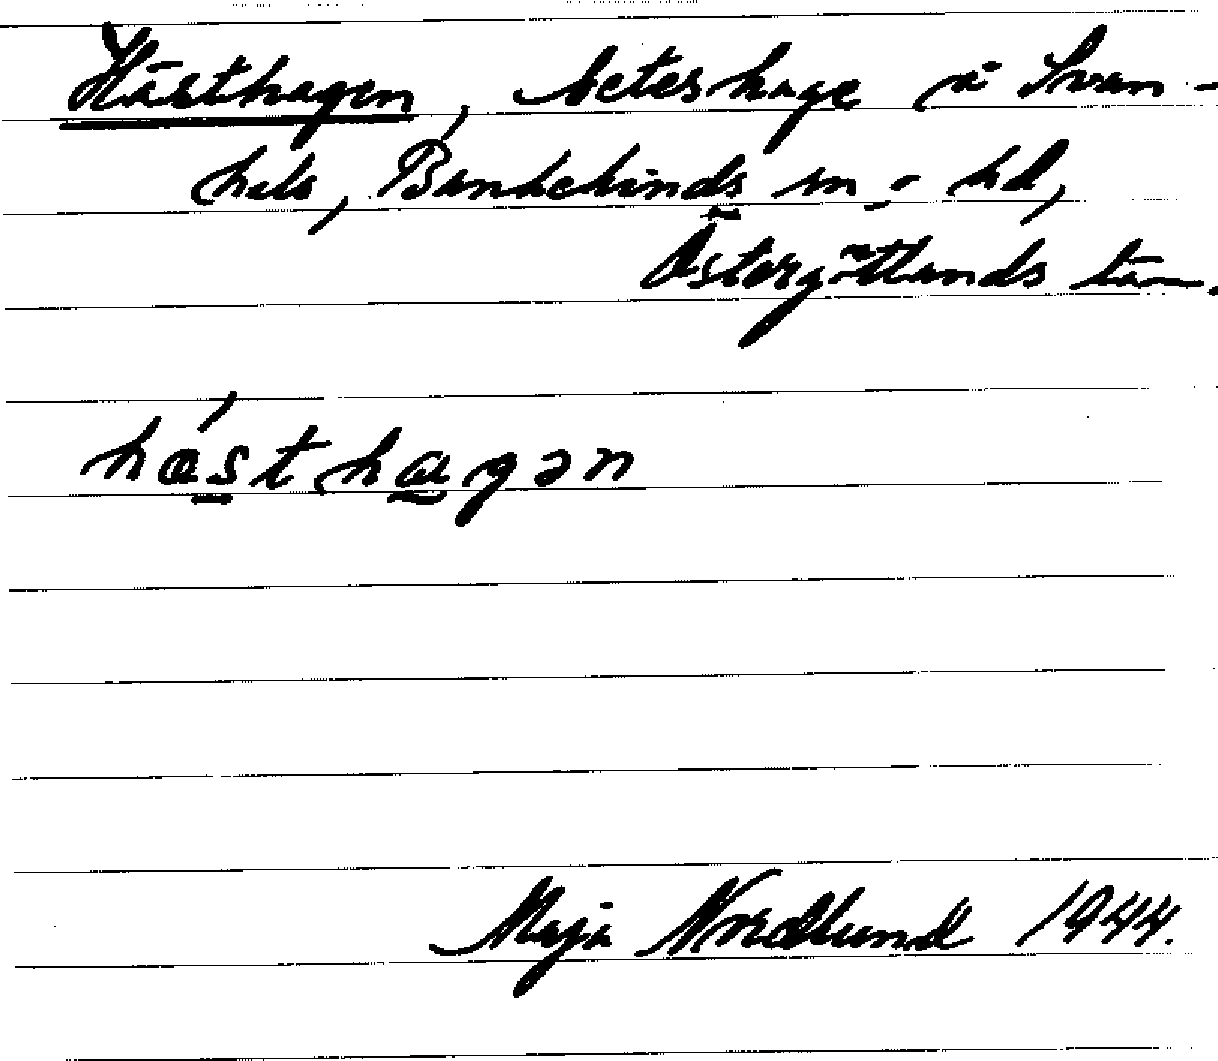 Hästhagen, beteshage å Svan-
hals, Bankekinds sn o hd,
Östergötlands län.
hæ´sthagən
Maja Nordlund 1944.